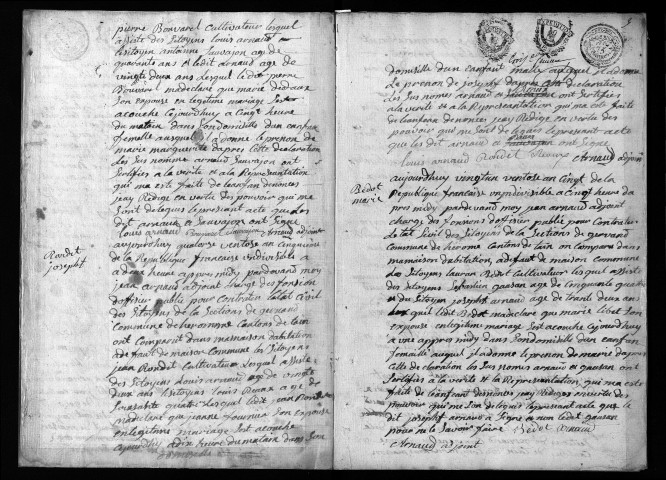 pierre Bouvaret Cultivateur lesquel
assiste des Sitoyens louis arnaud
sitoyen antoinne sauvajon age de
quarante ans et ledit arnaud age de
vingte deux ans lesquel ledit pierre
Bouvaret madeclare que marie
Son Epouse en legitime mariage sest
acouche cejourdhuy a Cinq heure
du matain dans sondomisille dun canfan
femelle auquel il a donne le prenon de
marie marguerite dapres Cette declaration
les sus nomme arnaud sauvajon ont
sertifies a la verite et a la Representation
qui ma este faite de leanfan denonces
jeay Redige en vertu des pouvoir qui me
Sont delegues le present acte que le
dit arnaud et sauvajon ont Signe
louis arnaud sauvajon Arnaud adjoint
Rondet
joseph
aujourdhuy quatorse ventose an cinquieme
de la Republique franseaise indivisible a
a deux heure apres midy pardevand moy
jean arnaud adjoint charge des fonsion
doffisier public pour Contraten letat Civil
des Sitoyens de la Sections de gervans
Commune de herome Cantons de tain
ont Comparut dans mamaison dabitation
a defaut de maison Commune les Sitoyens
jean Rondet Cultivateur lesquel assiste
des Sitoyens louis arnaud age de vingte
deux ans Sitoyens louis Roux age de
soisante quatre lesquel ledit jean Rondet
madeclare que jeanne fournier Son Epouse
en legitime mariage sest acouche
cejourdhuy a dix heure du matain dans sont
5
domisille dun canfant malle auquel il adonne
le prenon de joseph dapres Cette declaration
les Sus nomes arnaud et ont sertifiés
a la verite et a la Representation qui ma este faite
de leanfans denonces jeay Redige en vertu des
pouvoir qui me Sont delegues le present acte
que les dit arnaud et ont Signe
louis arnaud Rondet Roux Arnaud adjoin
Bedot
marie
aujourdhuy vingtun ventose an Cinq de la
Republique franseaise indivisible a Cinq heure da
pres midy pardevand moy jean arnaud adjoint
charge des fonsions doffisier public pour Contrater
letat Civil des Sitoyens de la Sections de gervand
Commune de herome Cantons de tain on Compare dans
mamaison dabitation adefaut de maison Commune
les Sitoyens lauran Bedot Cultivateur lesquel assiste
des Sitoyens Sebastien gausan age de Cinquante quatre
et du Sitoyen joseph arnaud age de trante deux ans
lesquel ledit Bedot madeclare que marie libet son
expouse en legitime mariage sest acouche cejourdhuy
a une apres midy dans Sondomisille dun canfan
femaille auquel il adonne le prenon de marie dapres
Cette declaration les Sus nomes arnaud et gausan ont
sertifies a la verite et la Representation, qui ma este
faite de leanfant denonces jeay Redige en vertu des
pouvoir qui me Son delegues le present acte que le
dit joseph arnaud a Signe et non ledit gausan
pour ne le Savoir faire Bedot arnaud
Arnaud adjoint